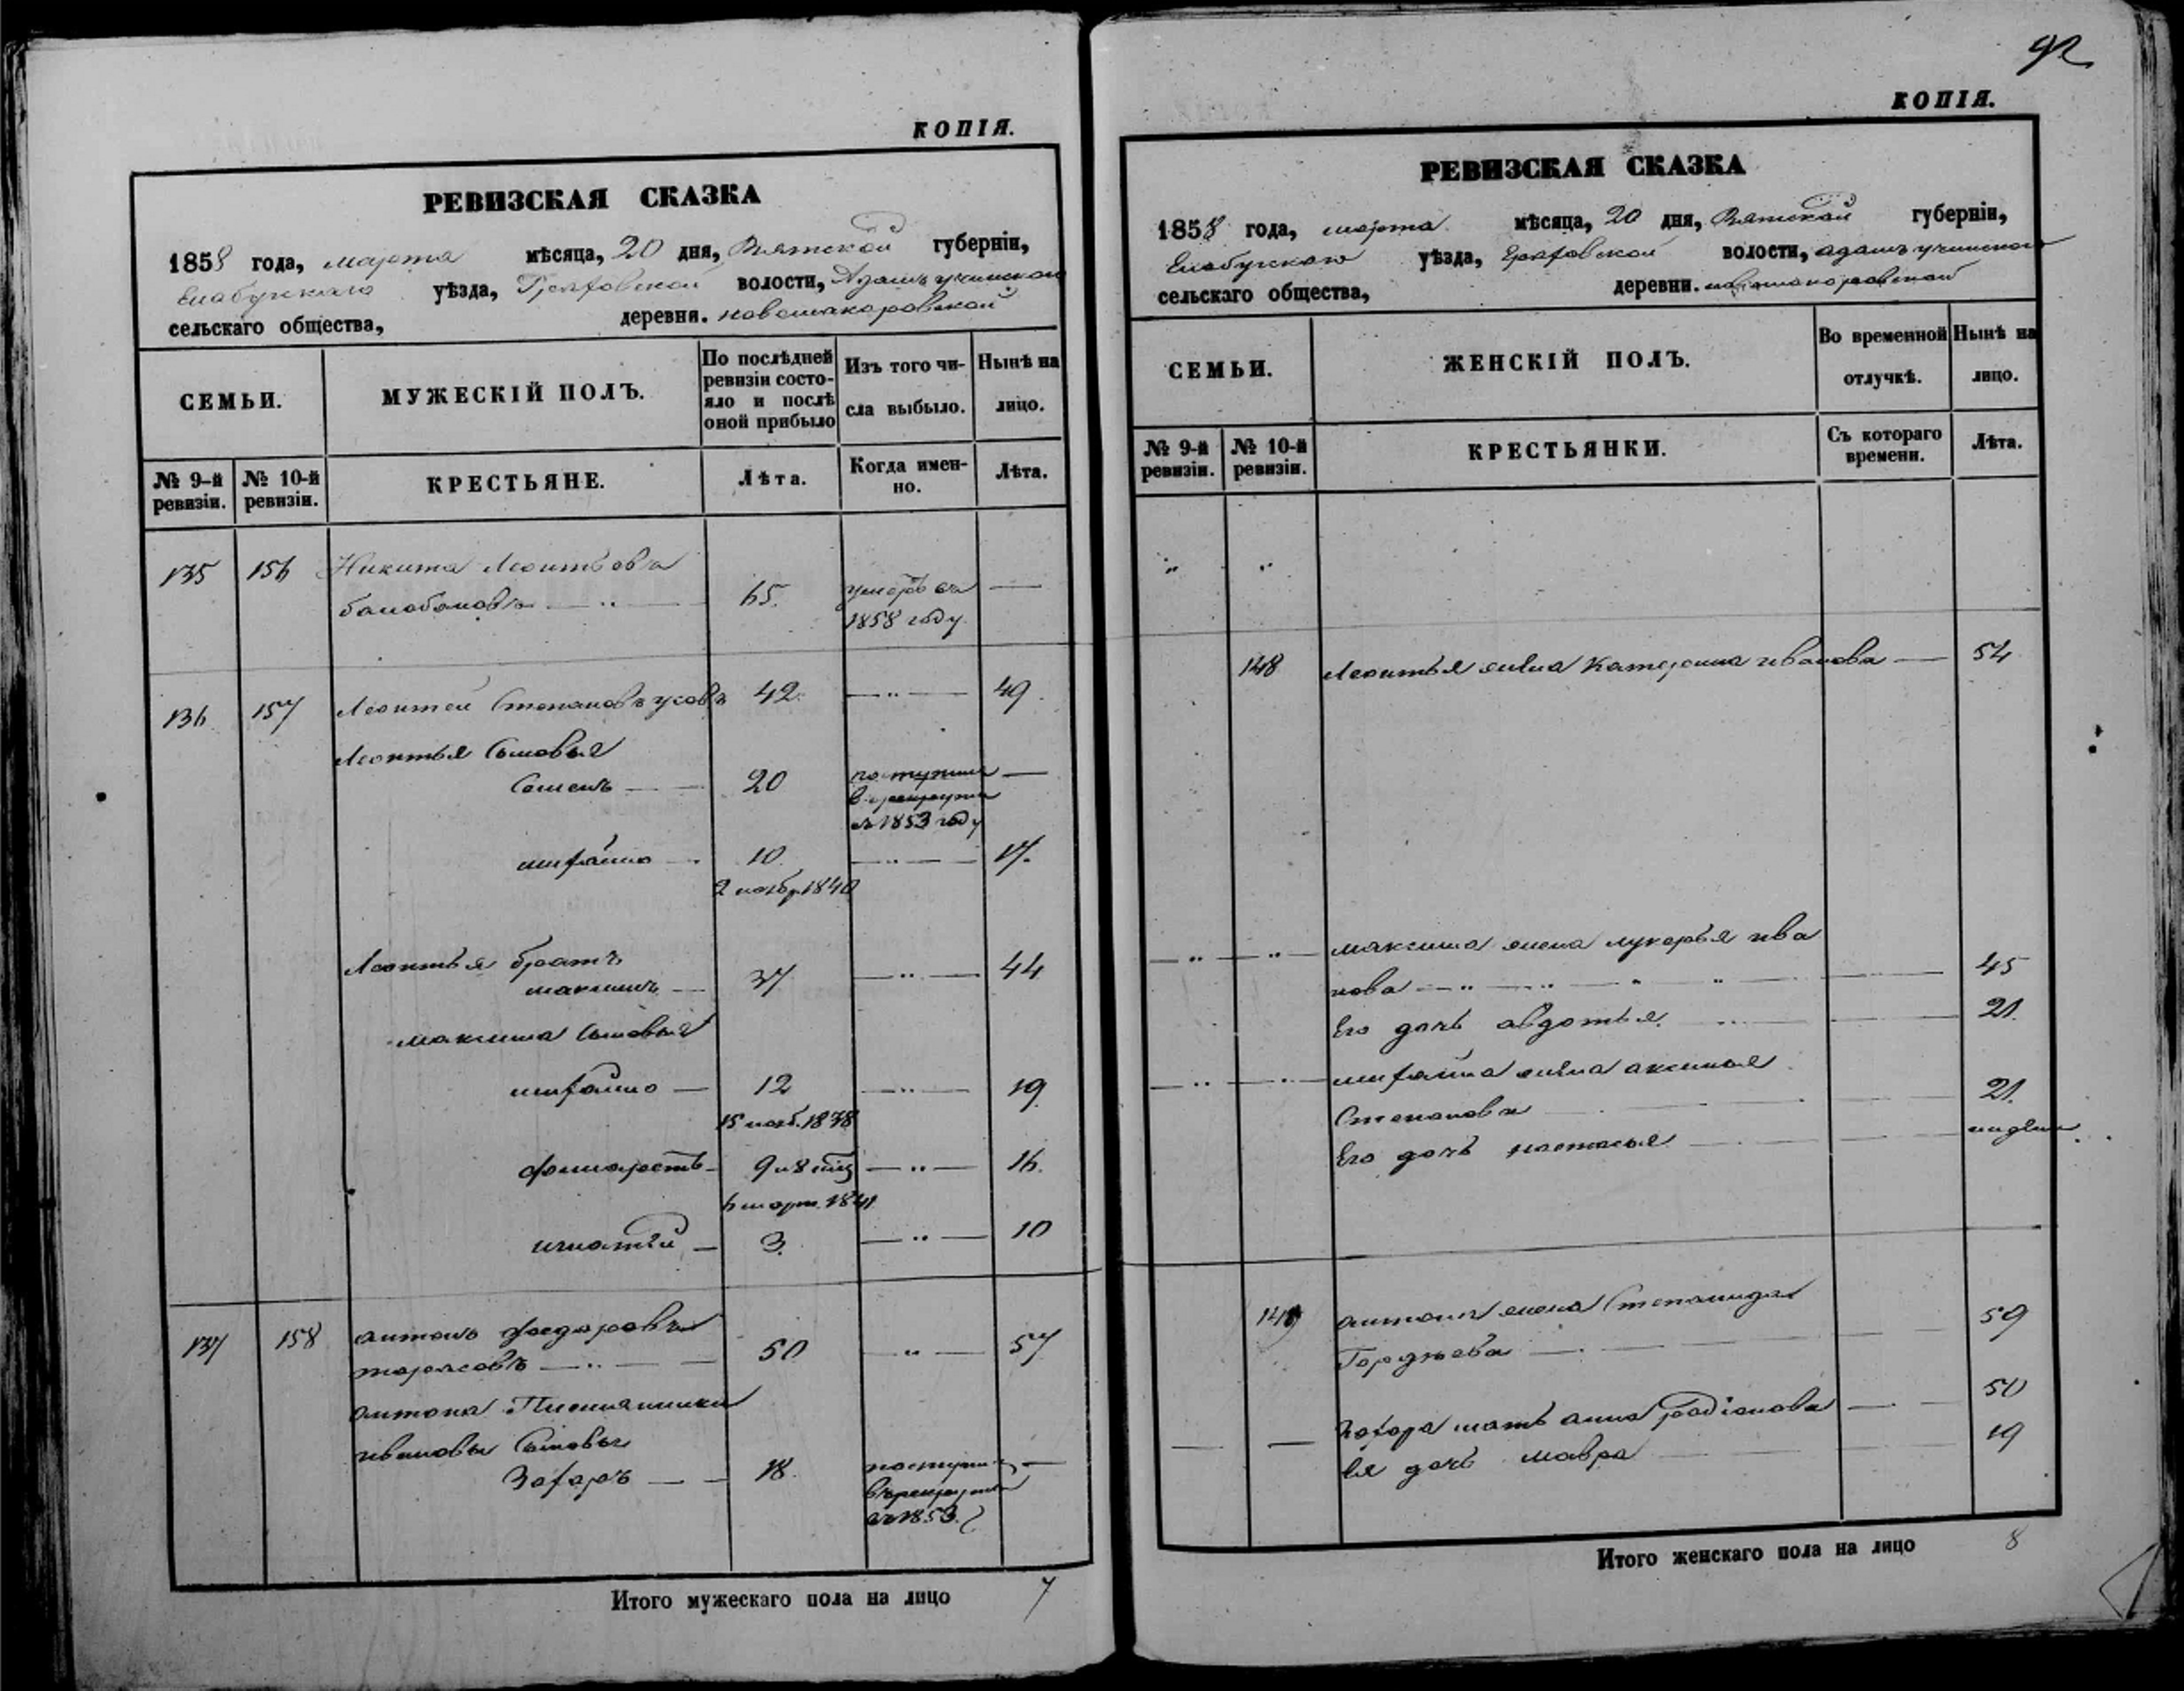 КОПІЯ.
РЕВИЗСКАЯ СКАЗКА
1858 года, марта мѣсяца, 20 дня, Вятской губерніи,
Елабужскаго уѣзда, Граховской волости,
сельскаго общества, деревни.
СЕМЬИ.
МУЖЕСКІЙ ПОЛЪ.
По послѣдней ревизіи состо-
яло и послѣ оной прибыло
Изъ того чи-
сла выбыло.
Нынѣ на
лицо.
№ 9-й ревизіи.
№ 10-й ревизіи.
КРЕСТЬЯНЕ.
Лѣта.
Когда имен-
но.
Лѣта.
135 156 Никита Леонтьевъ
65. умеръ въ —
1858 году
136 157 Леонтей Степановъ усовъ 42. — " — 49.
Леонтья Сыновья
Семенъ — 20 поступилъ —
в рекруты
въ 1853 году
10. — " — 17.
2 нояб. 1840
Леонтья братъ
максимъ — 37 — " — 44
максима Сыновья
12 — " — 19
15 нояб. 1838
9 и 8 мѣц — " — 16.
6 март. 1841
игнатей — 3. — " — 10
137 158 антонъ федоровъ
тарасовъ — " — 50 — " — 57
антона Племянники
ивановы Сыновья
Захаръ — 18. поступилъ —
въ рекруты
въ 1853. г
Итого мужескаго пола на лицо 7
92
КОПІЯ.
РЕВИЗСКАЯ СКАЗКА
1858 года, марта мѣсяца, 20 дня, Вятской губерніи,
Елабужскаго уѣзда, Граховской волости,
сельскаго общества, деревни.
СЕМЬИ.
ЖЕНСКІЙ ПОЛЪ.
Во временной
отлучкѣ.
Нынѣ на
лицо.
№ 9-й ревизіи.
№ 10-й ревизіи.
КРЕСТЬЯНКИ.
Съ котораго
времени.
Лѣта.
" "
148 Леонтья жена Катерина иванова — 54
— " — " — максима жена лукерья ива
нова — " — 45
Его дочь авдотья. 21.
жена аксинья
Степанова 21.
Его дочь настасья
149 антона жена Степанида
Гордѣева — 59
Захара мать анна родіонова — 50
Ея дочь мавра 19
Итого женскаго пола на лицо 8